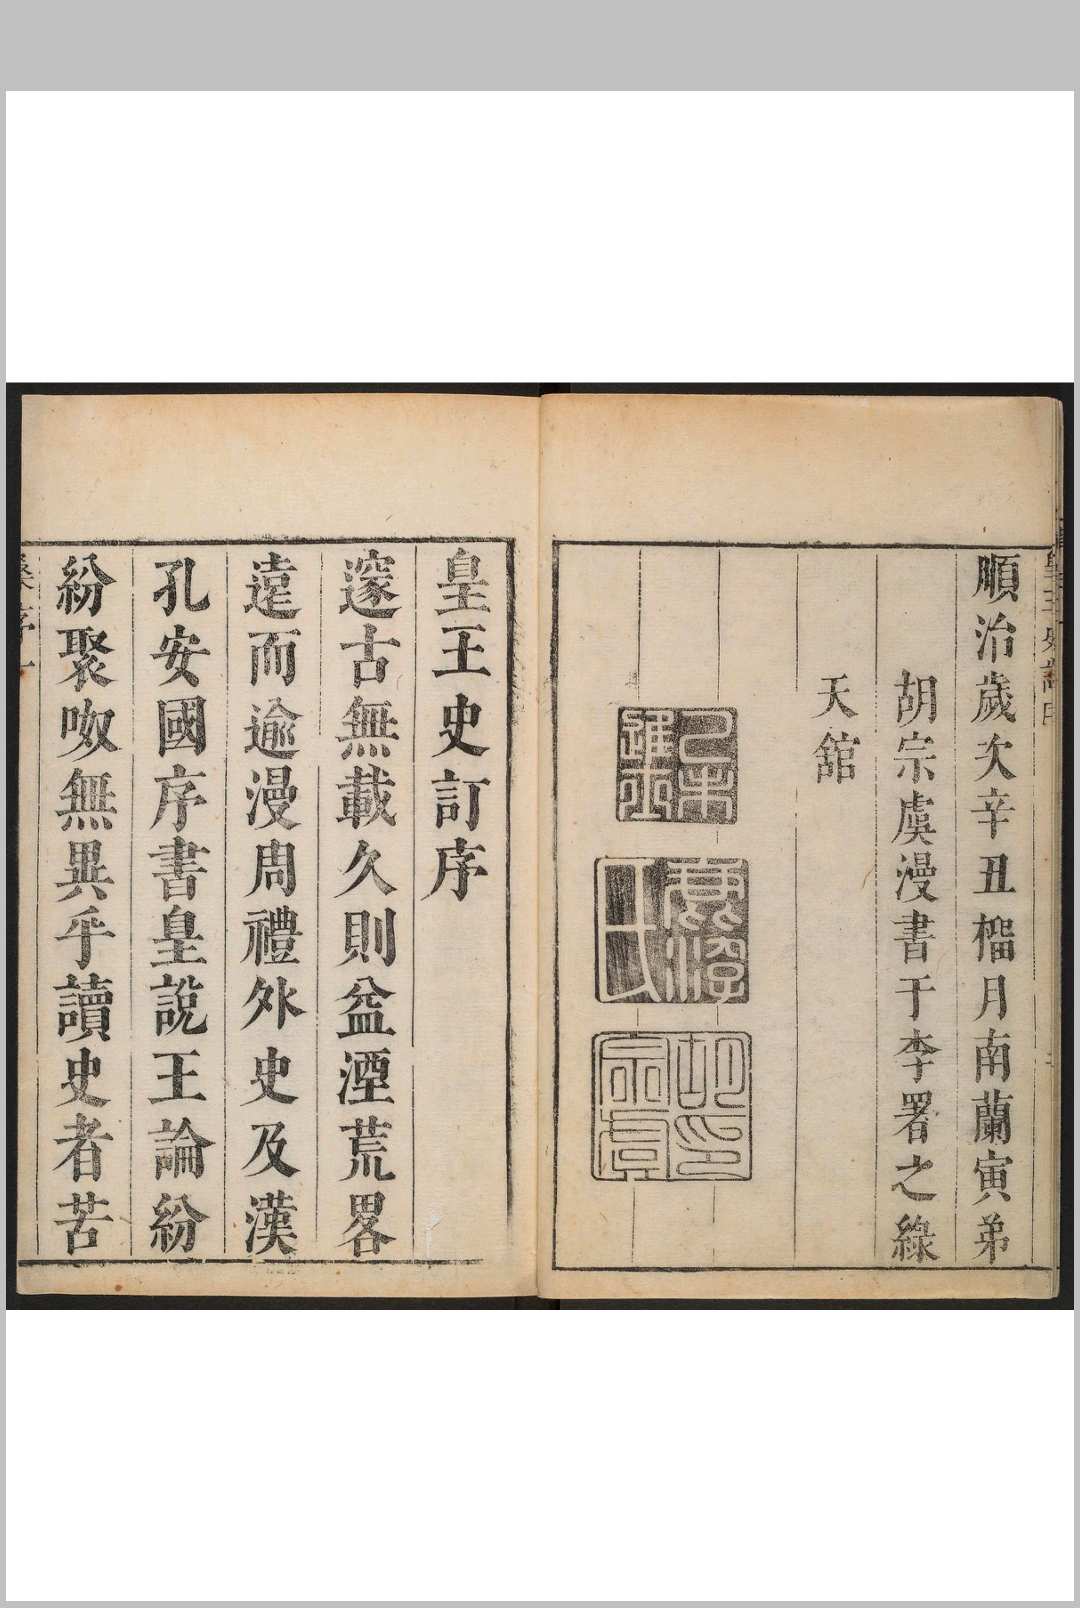 順治歲次辛丑橊月南蘭寅弟
胡宗虞漫書于李署之綠
天舘
皇王史訂序
邃古無載久則益湮荒畧
遠而逾漫周禮外史及漢
孔安國序書皇說王論紛
紛聚呶無異乎讀史者苦